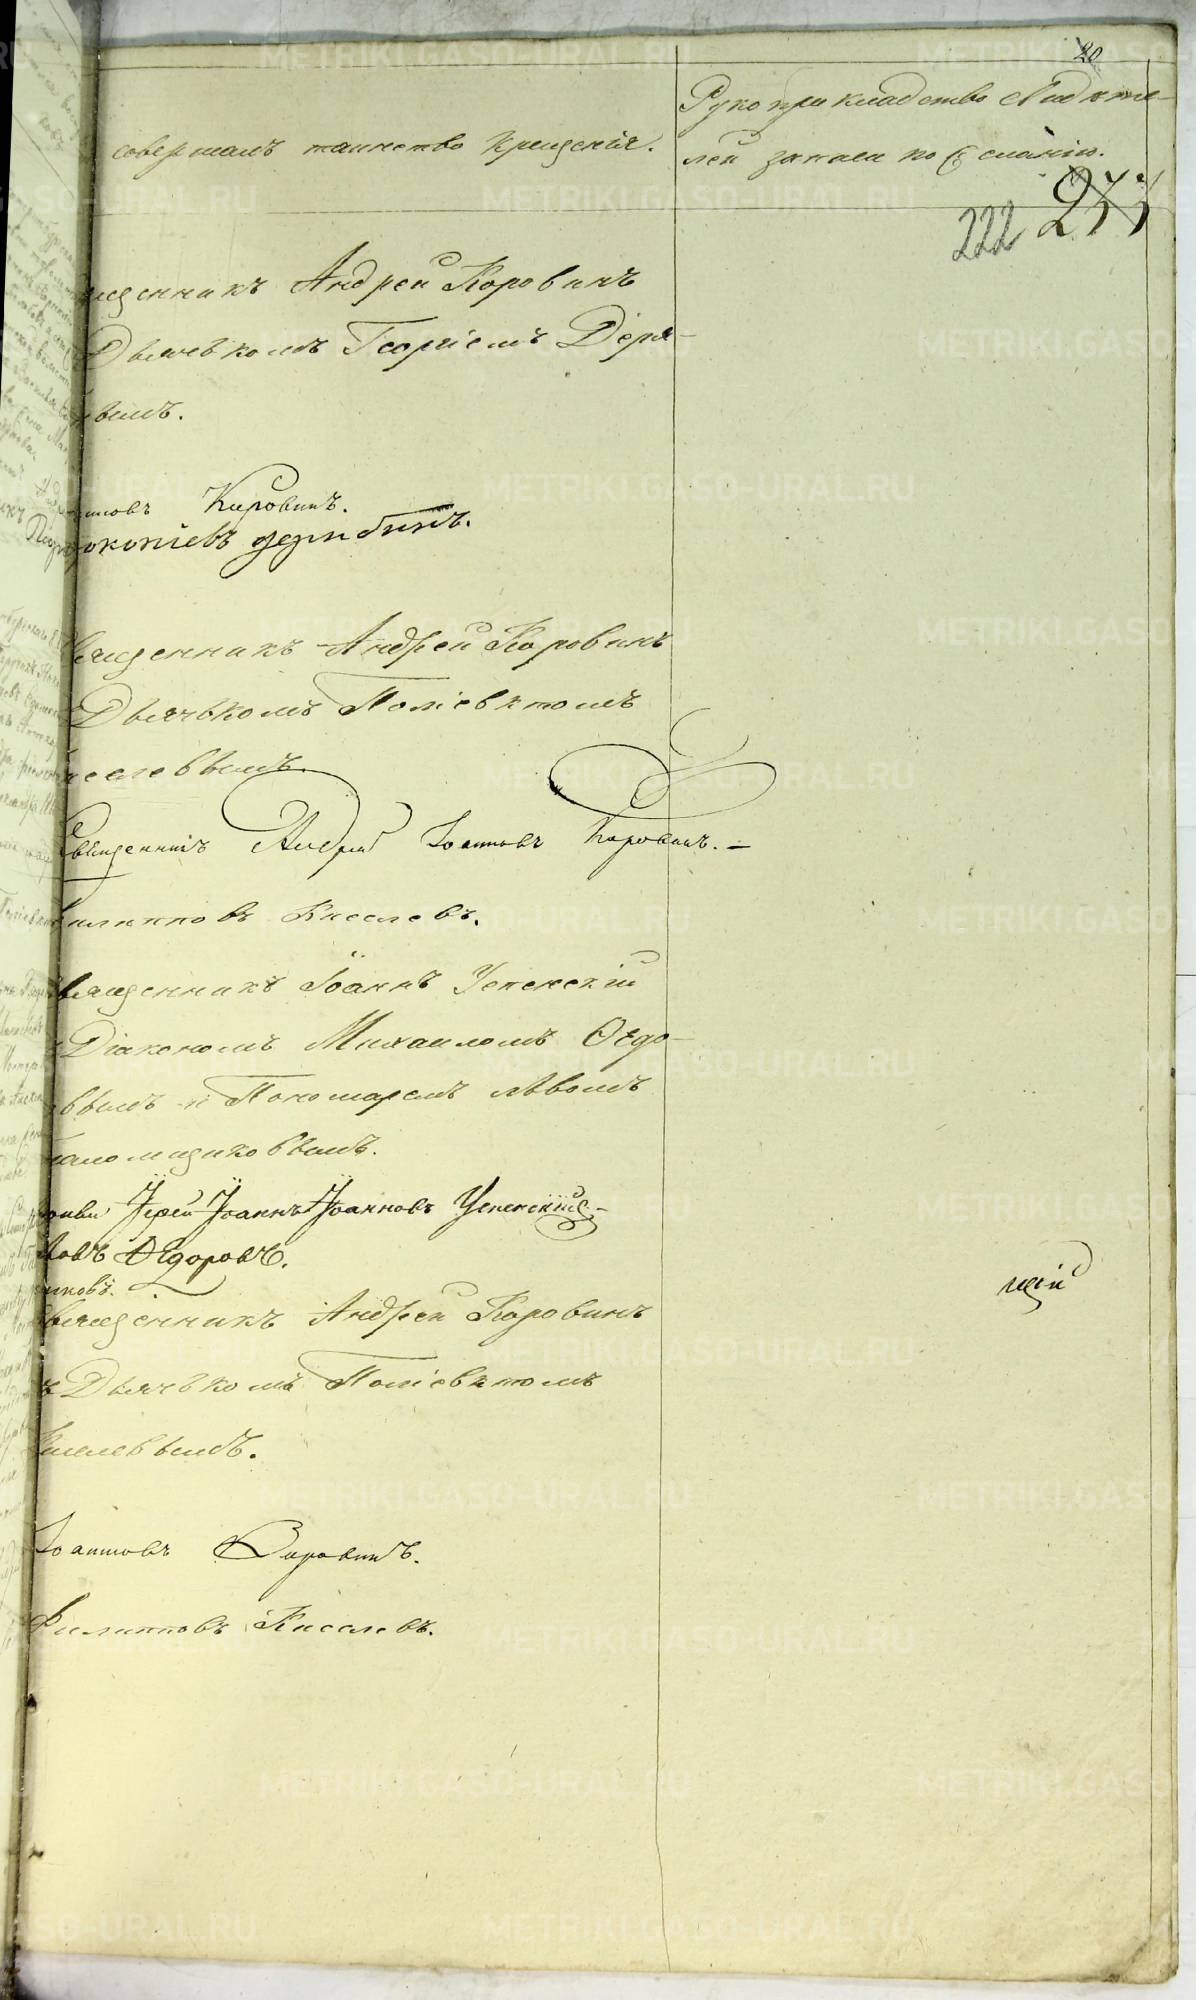 20
совершалъ таинство крещенія.
Рукоприкладство Свидѣте-
лей записи по желанію.
222 277
щенникъ Андрей Коровинъ
Дьячькомъ Георгіемъ Деря-
вымъ.
нновъ Коровинъ.
Прокопіевъ дерябинъ.
вященникъ Андрей Коровинъ
Дьячькомъ Поліевктомъ
иселевымъ.
Священникъ Андрей Іоанновъ Коровинъ.
илипповъ Киселевъ.
вященникъ Іоаннъ Успенскій
Діакономъ Михаиломъ Ѳедо-
вымъ и Пономаремъ Львомъ
аломщиковымъ.
Іерей Іоаннъ Іоанновъ Успенскій
ловъ Ѳедоровъ.
щій
иковъ.
вященникъ Андрей Коровинъ
ъ Дьячькомъ Поліевктомъ
Киселевымъ.
Іоанновъ Коровинъ.
Филипповъ Киселевъ.
METRIKI.GASO-URAL.RU